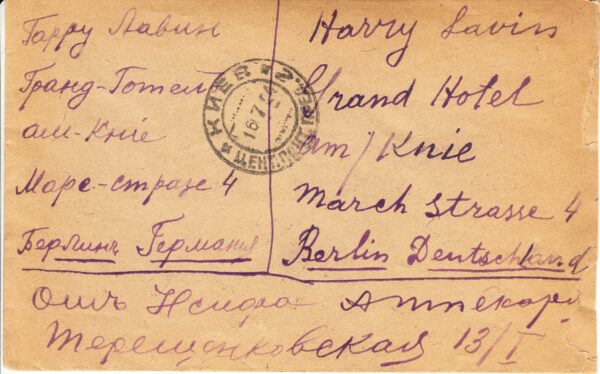 Гарру Лавин
Гранд-Готель
ам-Кніе
Марс-страсе 4
Берлинъ Германия
Harry Lavin
Grand Hotel
am/Knie
March Strasse 4
Berlin Deutschland
КИЕВ
16.7
Отъ Аптекарь
Терещенковская 13/I